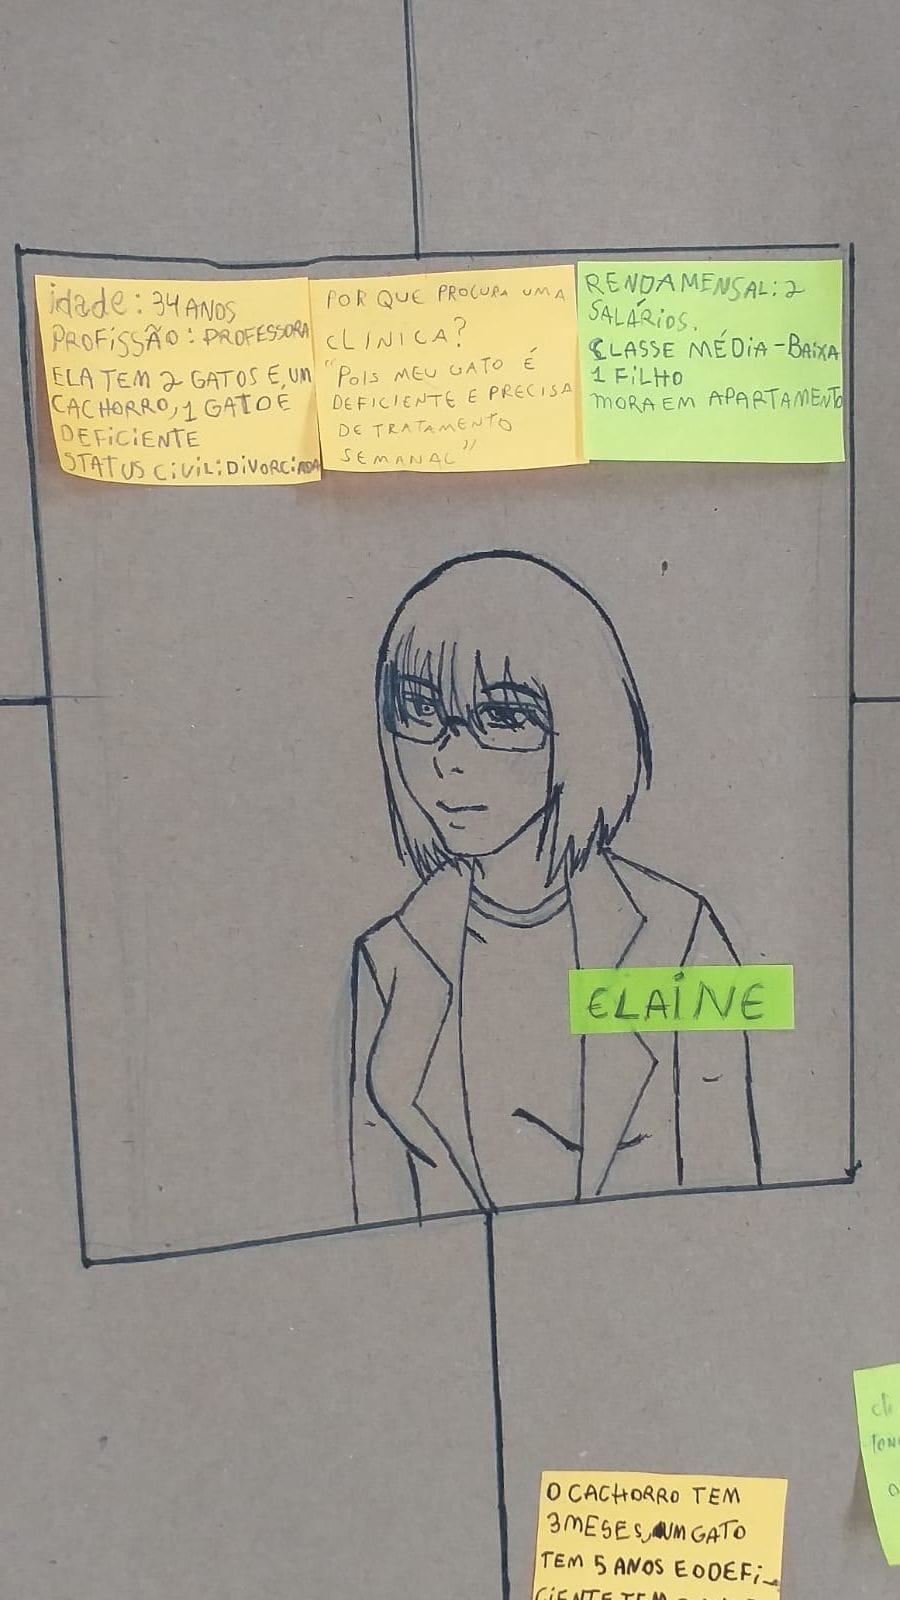 idade: 34 ANOS
PROFISSÃO: PROFESSORA
ELA TEM 2 GATOS E, UM
CACHORRO, 1 GATO E
DEFICIENTE
STATUS CIVIL: DIVORCIADA
POR QUE PROCURA UMA
CLINICA?
"POIS MEU GATO É
DEFICIENTE E PRECISA
DE TRATAMENTO
SEMANAL"
RENDA MENSAL: 2
SALÁRIOS.
CLASSE MÉDIA-BAIXA
1 FILHO
MORA EM APARTAMENTO
ELAINE
O CACHORRO TEM
3 MESES, UM GATO
TEM 5 ANOS E O DEFI-
CIENTE TEM